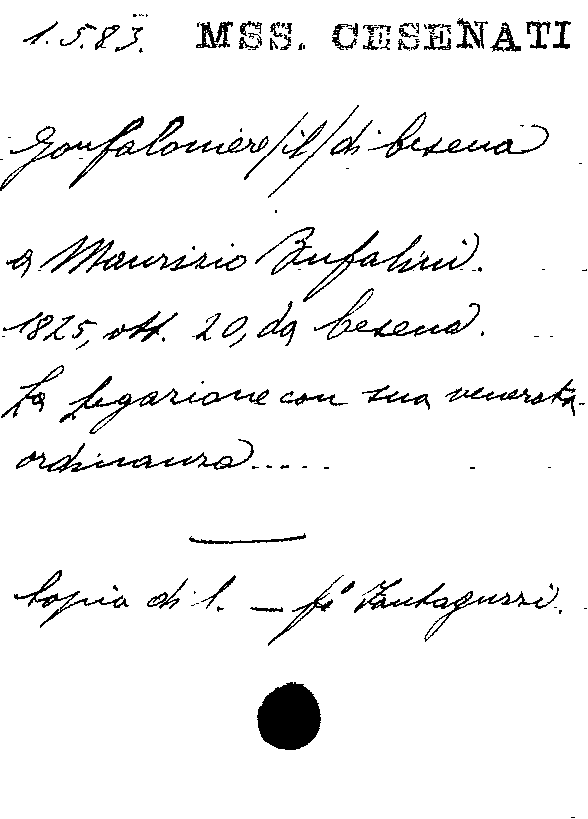 1.5.83. MSS. CESENATI
Gonfaloniere /il/ di Cesena
a Maurizio Bufalini.
1825, ott. 20, da Cesena.
La Legazione con sua venerata
ordinanza.....
Copia di l. — fº Fantaguzzi.